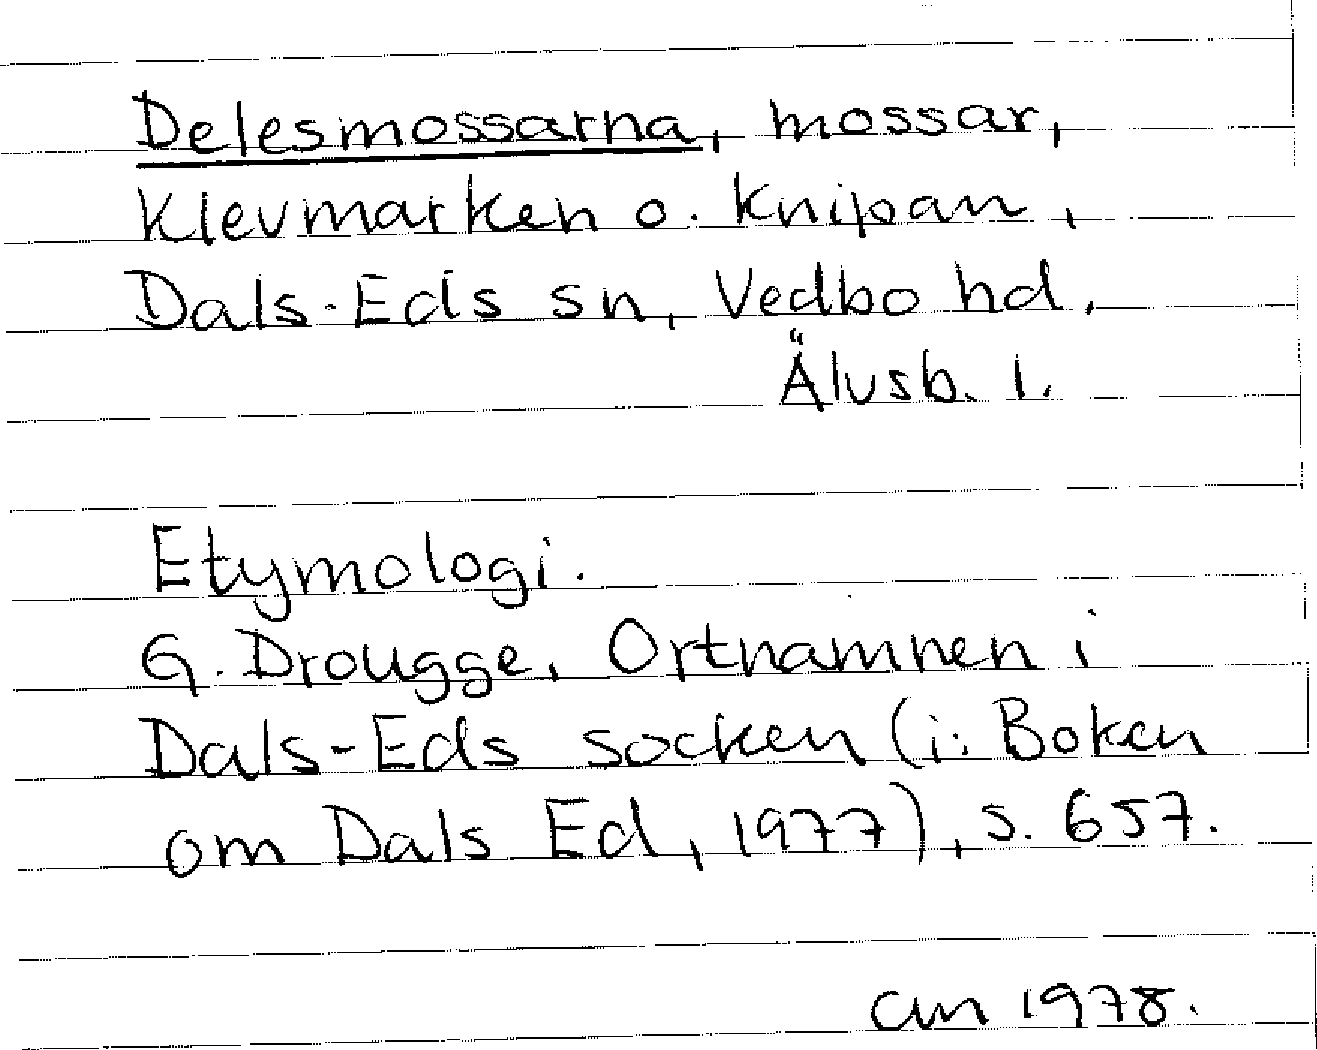 Delesmossarna, mossar,
Klevmarken o. Knipan,
Dals-Eds sn, Vedbo hd,
Älvsb. l.
Etymologi.
G. Drougge, Ortnamnen i
Dals-Eds socken (i: Boken
om Dals Ed, 1977), s. 657.
am 1978.